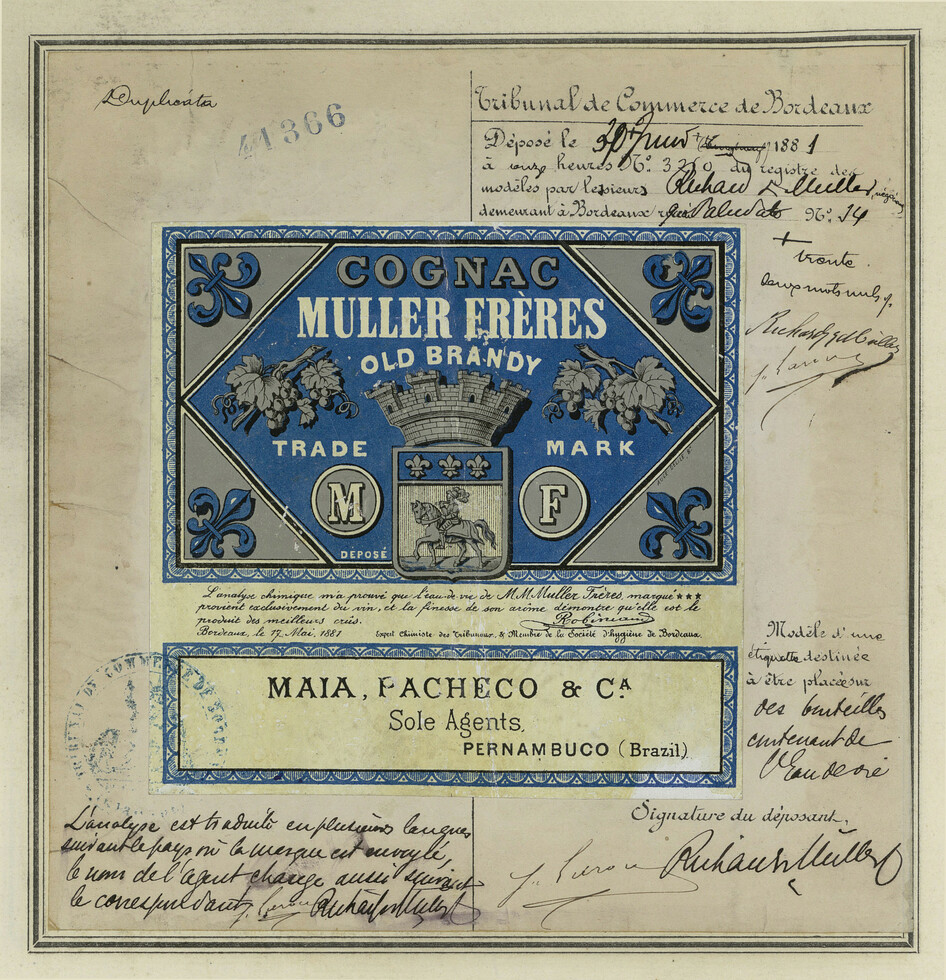 Duplicata
41366
Tribunal de Commerce de Bordeaux
Déposé le 30 + Juin + 1881
à onze heures N° 3260 du registre des
modèles par les sieurs Richard & Muller,
demeurant à Bordeaux Paludate N° 14
+ trente.
deux mots nuls
Richard & Muller
COGNAC
MULLER FRÈRES
OLD BRANDY
TRADE MARK
M F
DÉPOSÉ
L'analyse chimique m'a prouvé que l'eau-de-vie de M.M. Muller Frères, marque ★★★
provient exclusivement du vin, et la finesse de son arôme démontre qu'elle est le
produit des meilleurs crûs.
Robineaud
Bordeaux, le 17 Mai, 1881 Expert Chimiste des Tribunaux, & Membre de la Société d'hygiène de Bordeaux.
MAIA, PACHECO & CA
Sole Agents,
PERNAMBUCO (Brazil)
TRIBUNAL DE COMMERCE DE BORDEAUX
Modèle d'une
étiquette destinée
à être placée sur
des bouteilles
contenant de
l'Eau de vie
Signature du déposant,
Richard & Muller
L'analyse est traduite en plusieurs langues
suivant le pays où la marque est envoyée,
le nom de l'agent change aussi suivant
le correspondant
Richard & Muller